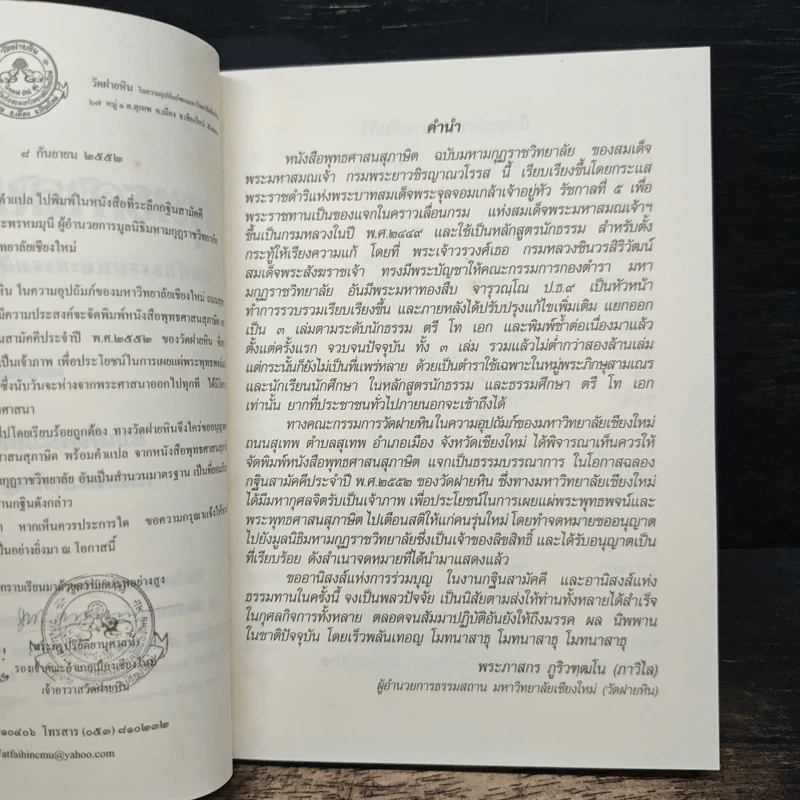 วัดฝายหิน ในความอุปถัมภ์ของมหาวิทยาลัยเชียงใหม่
๖๙ หมู่ ๑ ต.สุเทพ อ.เมือง จ.เชียงใหม่
๘ กันยายน ๒๕๕๒
คำแปล ไปพิมพ์ในหนังสือที่ระลึกกฐินสามัคคี
ะพรหมมุนี ผู้อำนวยการมูลนิธิมหามกุฏราชวิทยาลัย
ทยาลัยเชียงใหม่
หิน ในความอุปถัมภ์ของมหาวิทยาลัยเชียงใหม่ ถนนสุเทพ
มีความประสงค์จะจัดพิมพ์หนังสือพุทธศาสนสุภาษิต
นสามัคคีประจำปี พ.ศ.๒๕๕๒ ของวัดฝายหิน
เป็นเจ้าภาพ เพื่อประโยชน์ในการเผยแผ่พระพุทธพจน์
ซึ่งนับวันจะห่างจากพระศาสนาออกไปทุกที
ศาสนา
ปโดยเรียบร้อยถูกต้อง ทางวัดฝายหินจึงใคร่ขออนุญาต
าสนสุภาษิต พร้อมคำแปล จากหนังสือพุทธศาสนสุภาษิต
กุฏราชวิทยาลัย อันเป็นสำนวนมาตรฐาน เป็นที่ยอมรับ
านกฐินดังกล่าว
า หากเห็นควรประการใด ขอความกรุณาแจ้งให้
ป็นอย่างยิ่งมา ณ โอกาสนี้
กราบเรียนมาด้วยความเคารพอย่างสูง
รองเจ้าคณะอำเภอเมืองเชียงใหม่
เจ้าอาวาสวัดฝายหิน
๑๐๔๐๖ โทรสาร (๐๕๓) ๘๑๐๒๓๒
atfaihincmu@yahoo.com
คำนำ
หนังสือพุทธศาสนสุภาษิต ฉบับมหามกุฏราชวิทยาลัย ของสมเด็จ
พระมหาสมณเจ้า กรมพระยาวชิรญาณวโรรส นี้ เรียบเรียงขึ้นโดยกระแส
พระราชดำริแห่งพระบาทสมเด็จพระจุลจอมเกล้าเจ้าอยู่หัว รัชกาลที่ ๕ เพื่อ
พระราชทานเป็นของแจกในคราวเลื่อนกรม แห่งสมเด็จพระมหาสมณเจ้าฯ
ขึ้นเป็นกรมหลวงในปี พ.ศ.๒๔๔๙ และใช้เป็นหลักสูตรนักธรรม สำหรับตั้ง
กระทู้ให้เรียงความแก้ โดยที่ พระเจ้าวรวงศ์เธอ กรมหลวงชินวรสิริวัฒน์
สมเด็จพระสังฆราชเจ้า ทรงมีพระบัญชาให้คณะกรรมการกองตำรา มหา
มกุฏราชวิทยาลัย อันมีพระมหาทองสืบ จารุวณฺโณ ป.ธ.๙ เป็นหัวหน้า
ทำการรวบรวมเรียบเรียงขึ้น และภายหลังได้ปรับปรุงแก้ไขเพิ่มเติม แยกออก
เป็น ๓ เล่มตามระดับนักธรรม ตรี โท เอก และพิมพ์ซ้ำต่อเนื่องมาแล้ว
ตั้งแต่ครั้งแรก จวบจนปัจจุบัน ทั้ง ๓ เล่ม รวมแล้วไม่ต่ำกว่าสองล้านเล่ม
แต่กระนั้นก็ยังไม่เป็นที่แพร่หลาย ด้วยเป็นตำราใช้เฉพาะในหมู่พระภิกษุสามเณร
และนักเรียนนักศึกษา ในหลักสูตรนักธรรม และธรรมศึกษา ตรี โท เอก
เท่านั้น ยากที่ประชาชนทั่วไปภายนอกจะเข้าถึงได้
ทางคณะกรรมการวัดฝายหินในความอุปถัมภ์ของมหาวิทยาลัยเชียงใหม่
ถนนสุเทพ ตำบลสุเทพ อำเภอเมือง จังหวัดเชียงใหม่ ได้พิจารณาเห็นควรให้
จัดพิมพ์หนังสือพุทธศาสนสุภาษิต แจกเป็นธรรมบรรณาการ ในโอกาสฉลอง
กฐินสามัคคีประจำปี พ.ศ.๒๕๕๒ ของวัดฝายหิน ซึ่งทางมหาวิทยาลัยเชียงใหม่
ได้มีมหากุศลจิตรับเป็นเจ้าภาพ เพื่อประโยชน์ในการเผยแผ่พระพุทธพจน์และ
พระพุทธศาสนสุภาษิต ไปเตือนสติให้แก่คนรุ่นใหม่ โดยทำจดหมายขออนุญาต
ไปยังมูลนิธิมหามกุฏราชวิทยาลัยซึ่งเป็นเจ้าของลิขสิทธิ์ และได้รับอนุญาตเป็น
ที่เรียบร้อย ดังสำเนาจดหมายที่ได้นำมาแสดงแล้ว
ขออานิสงส์แห่งการร่วมบุญ ในงานกฐินสามัคคี และอานิสงส์แห่ง
ธรรมทานในครั้งนี้ จงเป็นพลวปัจจัย เป็นนิสัยตามส่งให้ท่านทั้งหลายได้สำเร็จ
ในกุศลกิจการทั้งหลาย ตลอดจนสัมมาปฏิบัติอันยังให้ถึงมรรค ผล นิพพาน
ในชาติปัจจุบัน โดยเร็วพลันเทอญ โมทนาสาธุ โมทนาสาธุ โมทนาสาธุ
พระภาสกร ภูริวฑฺฒโน (ภาวิไล)
ผู้อำนวยการธรรมสถาน มหาวิทยาลัยเชียงใหม่ (วัดฝายหิน)